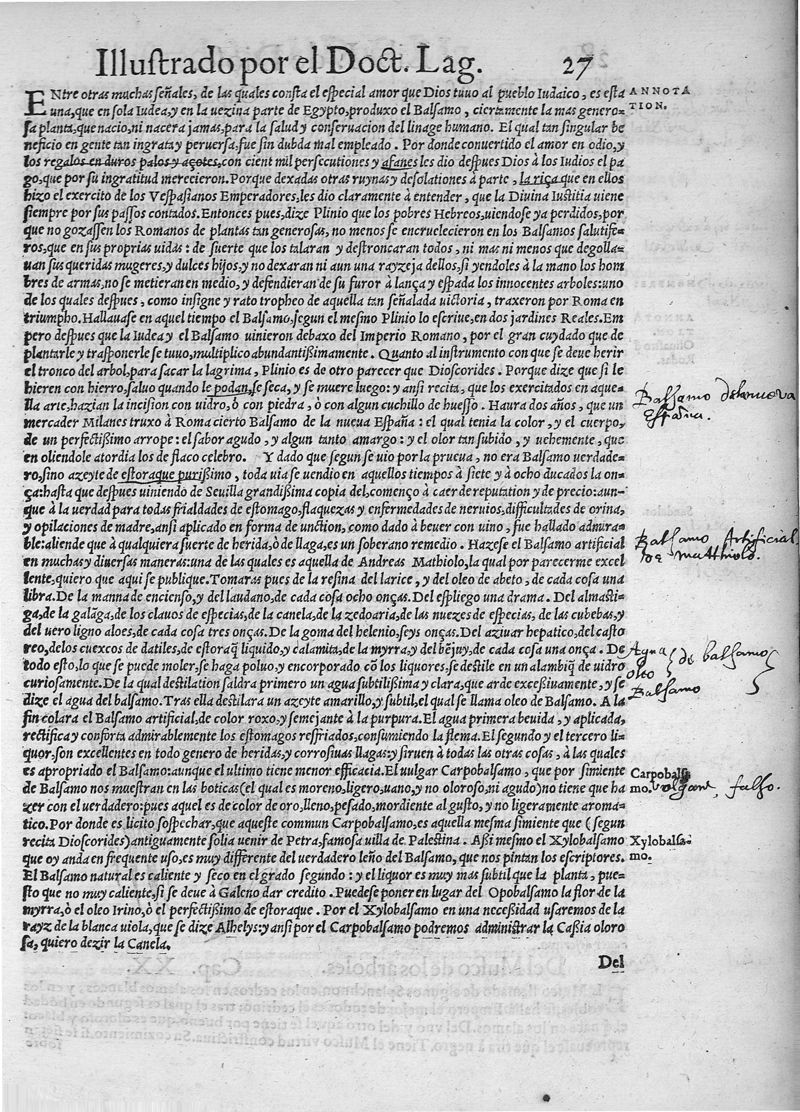 Illustrado por el Doct. Lag. 27
ENtre otras muchas señales, de las quales consta el especial amor que Dios tuuo al pueblo Iudaico, es esta
ANNOTA
TION.
una, que en sola Iudea, y en la uezina parte de Egypto, produxo el Balsamo, ciertamente la mas genero-
sa planta, que nacio, ni nacera jamas, para la salud y conseruacion del linage humano. El qual tan singular be
neficio en gente tan ingrata y peruersa, fue sin dubda mal empleado. Por donde conuertido el amor en odio, y
los regalos en duros palos y açotes, con cient mil persecutiones y afanes les dio despues Dios à los Iudios el pa
go, que por su ingratitud merecieron. Porque dexadas otras ruynas y desolationes à parte, la riça que en ellos
hizo el exercito de los Vespasianos Emperadores, les dio claramente à entender, que la Diuina Iustitia uiene
siempre por sus passos contados. Entonces pues, dize Plinio que los pobres Hebreos, uiendose ya perdidos, por
que no gozassen los Romanos de plantas tan generosas, no menos se encruelecieron en los Balsamos salutife-
ros, que en sus proprias uidas: de suerte que los talaran y destroncaran todos, ni mas ni menos que degolla-
uan sus queridas mugeres, y dulces hijos, y no dexaran ni aun una rayzeja dellos, si yendoles à la mano los hom
bres de armas, no se metieran en medio, y defendieran de su furor à lança y espada los innocentes arboles: uno
de los quales despues, como insigne y rato tropheo de aquella tan señalada uictoria, traxeron por Roma en
triumpho. Hallauase en aquel tiempo el Balsamo, segun el mesmo Plinio lo escriue, en dos jardines Reales. Em
pero despues que la Iudea y el Balsamo uinieron debaxo del Imperio Romano, por el gran cuydado que de
plantarle y trasponerle se tuuo, multiplico abundantißimamente. Quanto al instrumento con que se deue herir
el tronco del arbol, para sacar la lagrima, Plinio es de otro parecer que Dioscorides. Porque dize que si le
hieren con hierro, saluo quando le podan, se seca, y se muere luego: y ansi recita, que los exercitados en aque-
lla arte, hazian la incision con uidro, ò con piedra, ò con algun cuchillo de huesso. Haura dos años, que un
Balsamo dela nueva
España.
mercader Milanes truxo à Roma cierto Balsamo de la nueua España: el qual tenia la color, y el cuerpo,
de un perfectißimo arrope: el sabor agudo, y algun tanto amargo: y el olor tan subido, y uehemente, que
en oliendole atordia los de flaco celebro. Y dado que segun se uio por la prueua, no era Balsamo verdade-
ro, sino azeyte de estoraque purißimo, toda uia se uendio en aquellos tiempos à siete y à ocho ducados la on-
ça: hasta que despues uiniendo de Seuilla grandißima copia del, començo à caer de reputation y de precio: aun-
que à la verdad para todas frialdades de estomago, flaquezas y enfermedades de neruios, difficultades de orina,
y opilaciones de madre, ansi aplicado en forma de unction, como dado à beuer con uino, fue hallado admira-
ble: aliende que à qualquiera suerte de herida, ò de llaga, es un soberano remedio. Hazese el Balsamo artificial
Balsamo Artificial
de Matthiolo.
en muchas y diuersas maneras: una de las quales es aquella de Andreas Mathiolo, la qual por parecerme excel
lente, quiero que aqui se publique. Tomaras pues de la resina del larice, y del oleo de abeto, de cada cosa una
libra. De la manna de encienso, y del laudano, de cada cosa ocho onças. Del espliego una drama. Del almasti-
ga, de la galãga, de los clauos de especias, de la canela, de la zedoaria, de las nuezes de especias, de las cubebas, y
del uero ligno aloes, de cada cosa tres onças. De la goma del helenio, seys onças. Del aziuar hepatico, del casto
reo, delos cuexcos de datiles, de estoraq̃ liquido, y calamita, de la myrra, y del bẽjuy, de cada cosa una onça. De
todo esto, lo que se puede moler, se haga poluo, y encorporado cõ los liquores, se destile en un alambiq̃ de uidro
Agua
oleo
Balsamo
de balsamo
curiosamente. De la qual destilation saldra primero un agua subtilißima y clara, que arde excesßiuamente, y se
dize el agua del balsamo. Tras ella destilara un azeyte amarillo, y subtil, el qual se llama oleo de Balsamo. A la
fin colara el Balsamo artificial, de color roxo, y semejante à la purpura. El agua primera beuida, y aplicada,
rectifica y conforta admirablemente los estomagos resfriados, consumiendo la flema. El segundo y el tercero li-
quor, son excellentes en todo genero de heridas, y corrosiuas llagas: y siruen à todas las otras cosas, à las quales
es apropriado el Balsamo: aunque el ultimo tiene menor efficacia. El uulgar Carpobalsamo, que por simiente
Carpobalsa
mo.
vulgare, falso.
de Balsamo nos muestran en las boticas (el qual es moreno, ligero, uano, y no oloroso, ni agudo) no tiene que ha
zer con el uerdadero: pues aquel es de color de oro, lleno, pesado, mordiente al gusto, y no ligeramente aroma-
tico. Por donde es licito sospechar, que aqueste commun Carpobalsamo, es aquella mesma simiente que (segun
recita Dioscorides) antiguamente solia uenir de Petra, famosa uilla de Palestina. Aßi mesmo el Xylobalsamo
Xylobalsa-
mo.
que oy anda en frequente uso, es muy differente del verdadero leño del Balsamo, que nos pintan los escriptores.
El Balsamo natural es caliente y seco en el grado segundo: y el liquor es muy mas subtil que la planta, pue-
sto que no muy caliente, si se deue à Galeno dar credito. Puedese poner en lugar del Opobalsamo la flor de la
myrra, ò el oleo Irino, ò el perfectißimo de estoraque. Por el Xylobalsamo en una necesßidad usaremos de la
rayz de la blanca uiola, que se dize Alhelys: y ansi por el Carpobalsamo podremos administrar la Caßia oloro
sa, quiero dezir la Canela.
Del